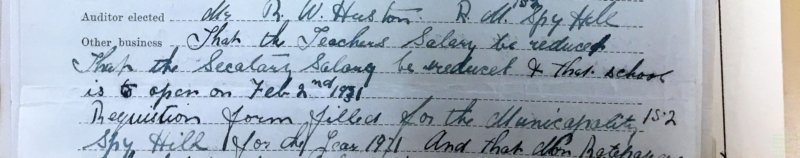 Auditor elected Mr R. W. Huston R. M. 152 Spy Hill
Other business That the Teachers Salary be reduced
That the Secatary Salary be reduced & that school
is to open on Feb 2nd 1931
Requistion form filled for the Municipality 152
Spy Hill for the Year 1931 And that Ratepayers